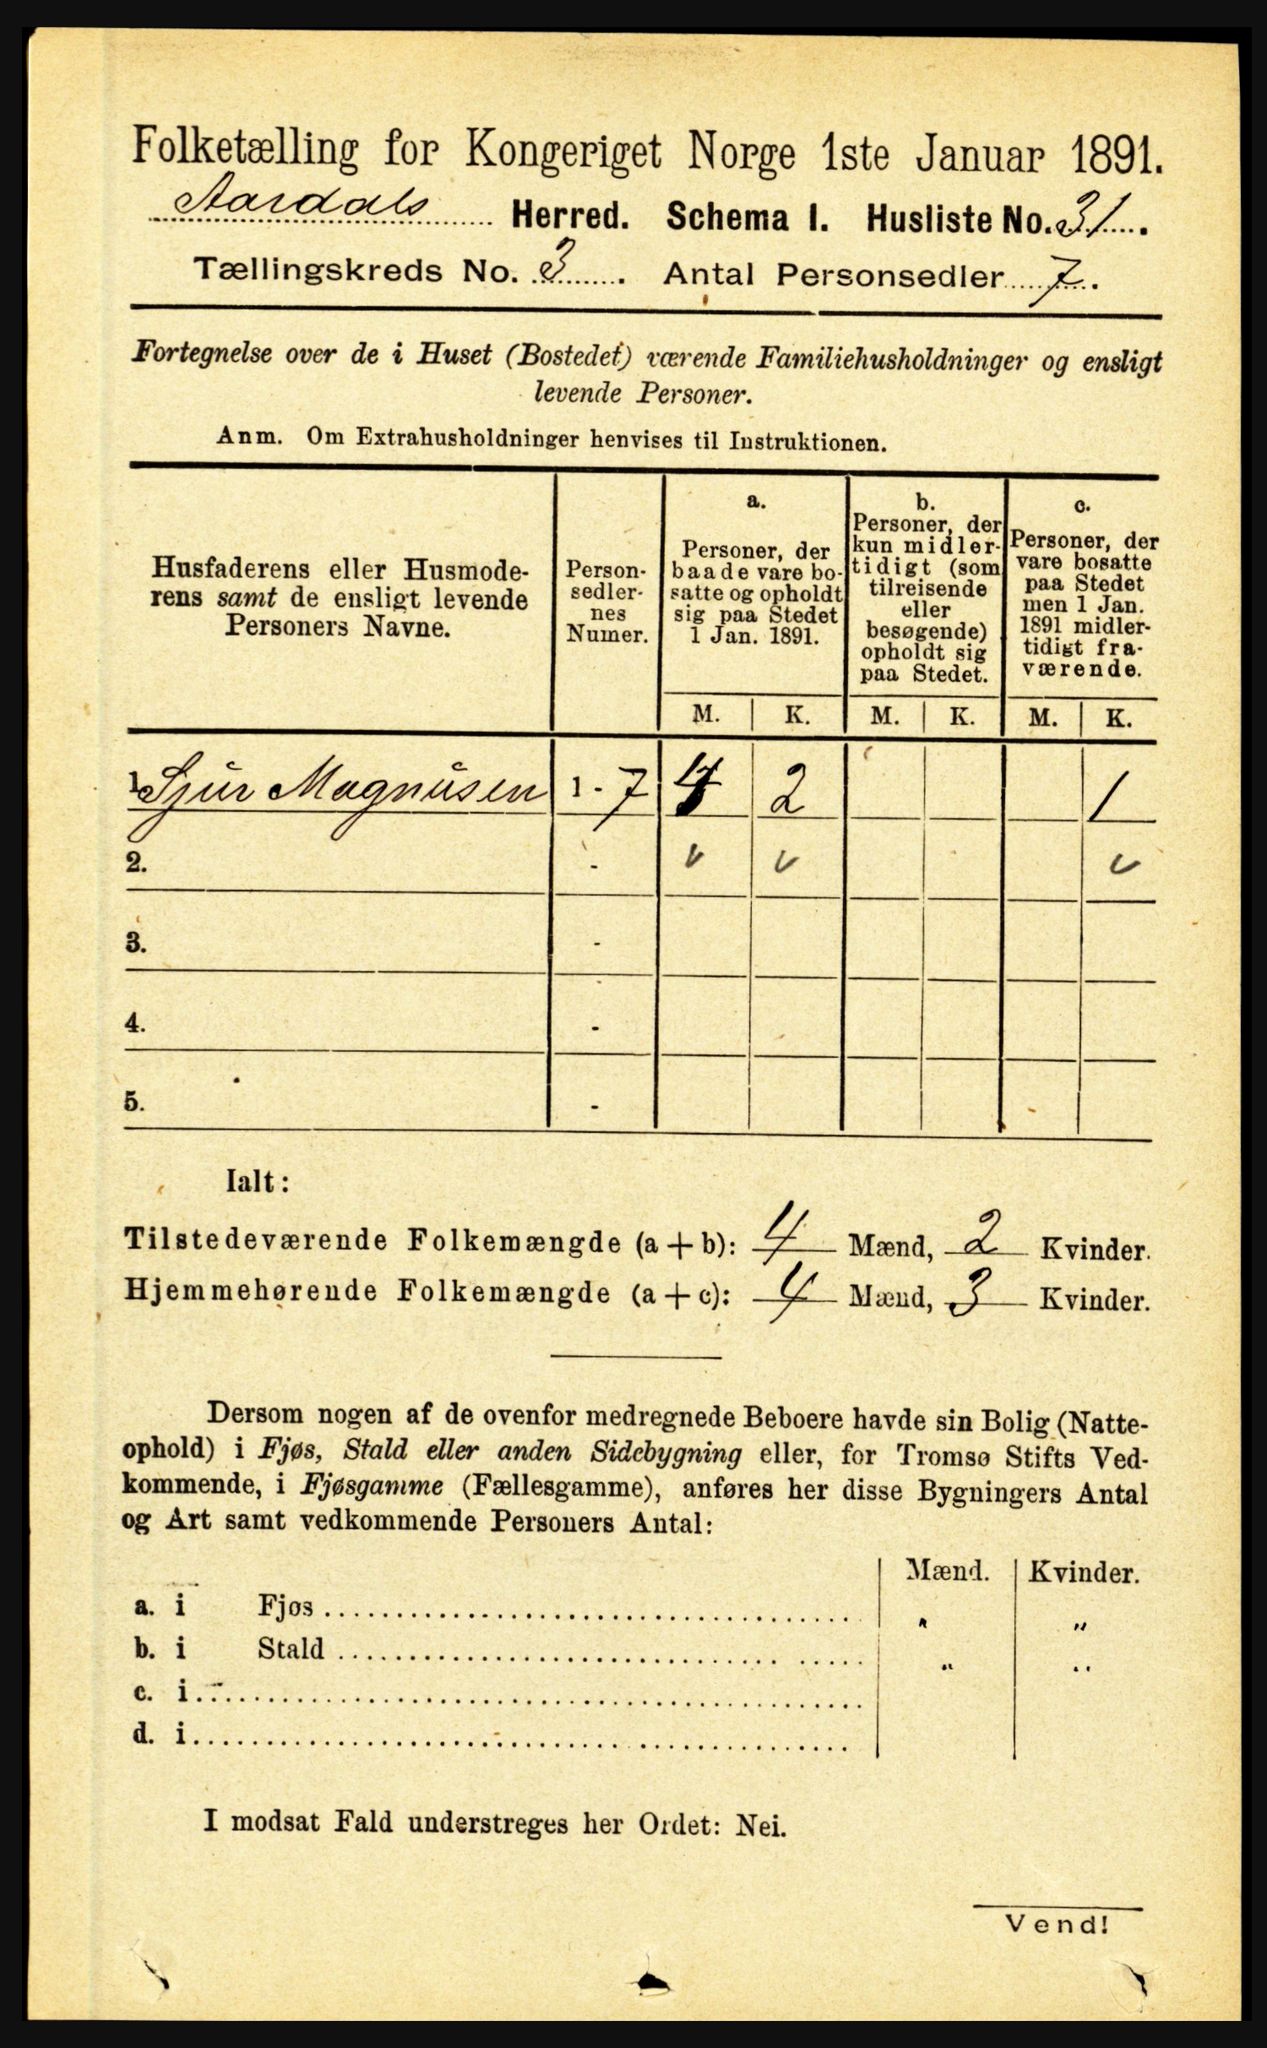 Folketælling for Kongeriget Norge 1ste Januar 1891.
Aardals Herred. Schema I. Husliste No. 31.
Tællingskreds No. 3. Antal Personsedler 7.
Fortegnelse over de i Huset (Bostedet) værende Familiehusholdninger og ensligt
levende Personer.
Anm. Om Extrahusholdninger henvises til Instruktionen.
Husfaderens eller Husmode-
rens samt de ensligt levende
Personers Navne.
Person-
sedler-
nes
Numer.
a.
Personer, der
baade vare bo-
satte og opholdt
sig paa Stedet
1 Jan. 1891.
b.
Personer, der
kun midler-
tidigt (som
tilreisende
eller
besøgende)
opholdt sig
paa Stedet.
c.
Personer, der
vare bosatte
paa Stedet
men 1 Jan.
1891 midler-
tidigt fra-
værende.
M. K. M. K. M. K.
1. Sjur Magnusen 1 - 7 4 2 1
2. - v v v
3. -
4. -
5. -
Ialt:
Tilstedeværende Folkemængde (a + b): 4 Mænd, 2 Kvinder.
Hjemmehørende Folkemængde (a + c): 4 Mænd, 3 Kvinder.
Dersom nogen af de ovenfor medregnede Beboere havde sin Bolig (Natte-
ophold) i Fjøs, Stald eller anden Sidebygning eller, for Tromsø Stifts Ved-
kommende, i Fjøsgamme (Fællesgamme), anføres her disse Bygningers Antal
og Art samt vedkommende Personers Antal:
Mænd. Kvinder.
a. i Fjøs " "
b. i Stald " "
c. i
d. i
I modsat Fald understreges her Ordet: Nei.
Vend!